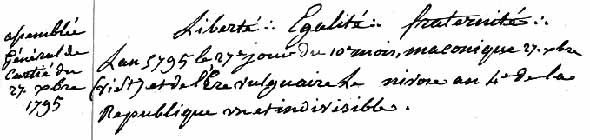 assemblée
Général de
Comité du
27. xbre
1795
Liberté ∴ Egalité ∴ fraternité ∴
L'an 5795 le 27e jour du 10e mois, maconique 27. xbre
(v. st) et de l'Ere vulguaire Le nivose an 4e de la
Republique une et indivisible.